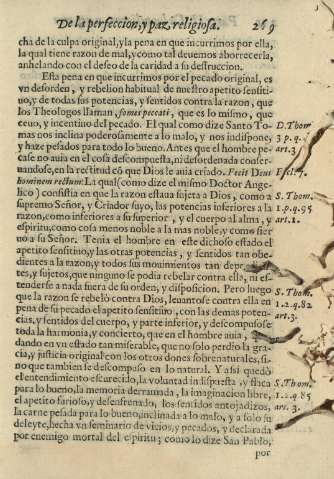 De la perfeccion, y paz religiosa. 269
cha de la culpa original, y la pena en que incurrimos por ella,
la qual tiene razon de mal, y como tal deuemos aborrecerla,
anhelando con el deseo de la caridad a su destruccion.
Esta pena en que incurrimos por el pecado original, es
vn desorden, y rebelion habitual de nuestro apetito sensiti-
uo, y de todas sus potencias, y sentidos contra la razon, que
los Theologos llaman, fomes peccati, que es lo mismo, que
ceuo, y incentiuo del pecado. El qual como dize Santo To-
mas nos inclina poderosamente a lo malo, y nos indispone,
y haze pesados para todo lo bueno. Antes que el hombre pe-
case no auia en el cosa descompuesta, ni desordenada conser-
uandose, en la rectitud cõ que Dios le auia criado. Fecit Deus
hominem rectum. La qual (como dize el mismo Doctor Ange-
lico) consistia en que la razon estaua sujeta a Dios, como a
supremo Señor, y Criador suyo, las potencias inferiores a la
razon, como inferiores a su superior, y el cuerpo al alma, y
espiritu, como cosa menos noble a la mas noble, y como sier
uo a su Señor. Tenia el hombre en este dichoso estado el
apetito sensitiuo, y las otras potencias, y sentidos tan obe-
dientes a la razon, y todos sus mouimientos tan
tes, y sujetos, que ninguno se podia rebelar contra ella, ni es-
tenderse a nada fuera de su orden, y disposicion. Pero luego
que la razon se rebelò contra Dios, leuantose contra ella en
pena de su pecado el apetito sensitiuo, con las demas poten-
cias, y sentidos del cuerpo, y parte inferior, y descompusose
toda la harmonia, y concierto, que en el hombre auia,
dando en vn estado tan miserable, que no solo perdio la gra-
cia, y justicia original con los otros dones sobrenaturales, si-
no que tambien se descompuso en lo natural. Y assi quedò
el entendimiento escurecido, la voluntad indispuesta, y flaca
para lo bueno, la memoria derramada, la imaginacion libre,
el apetito furioso, y desenfrenado, los sentidos antojadizos,
la carne pesada para lo bueno, inclinada a lo malo, y a solo su
deleyte, hecha vn seminario de vicios, y pecados, y declarada
por enemigo mortal del espiritu; como lo dize San Pablo,
por
D. Thom.
3 p. q.
art. 3.
Eccl. 7.
S. Thom.
1. p. q. 95
art. 1.
S. Thom.
1. 2. q. 82
art. 3.
S. Thom.
1. 2. q. 85
art. 3.